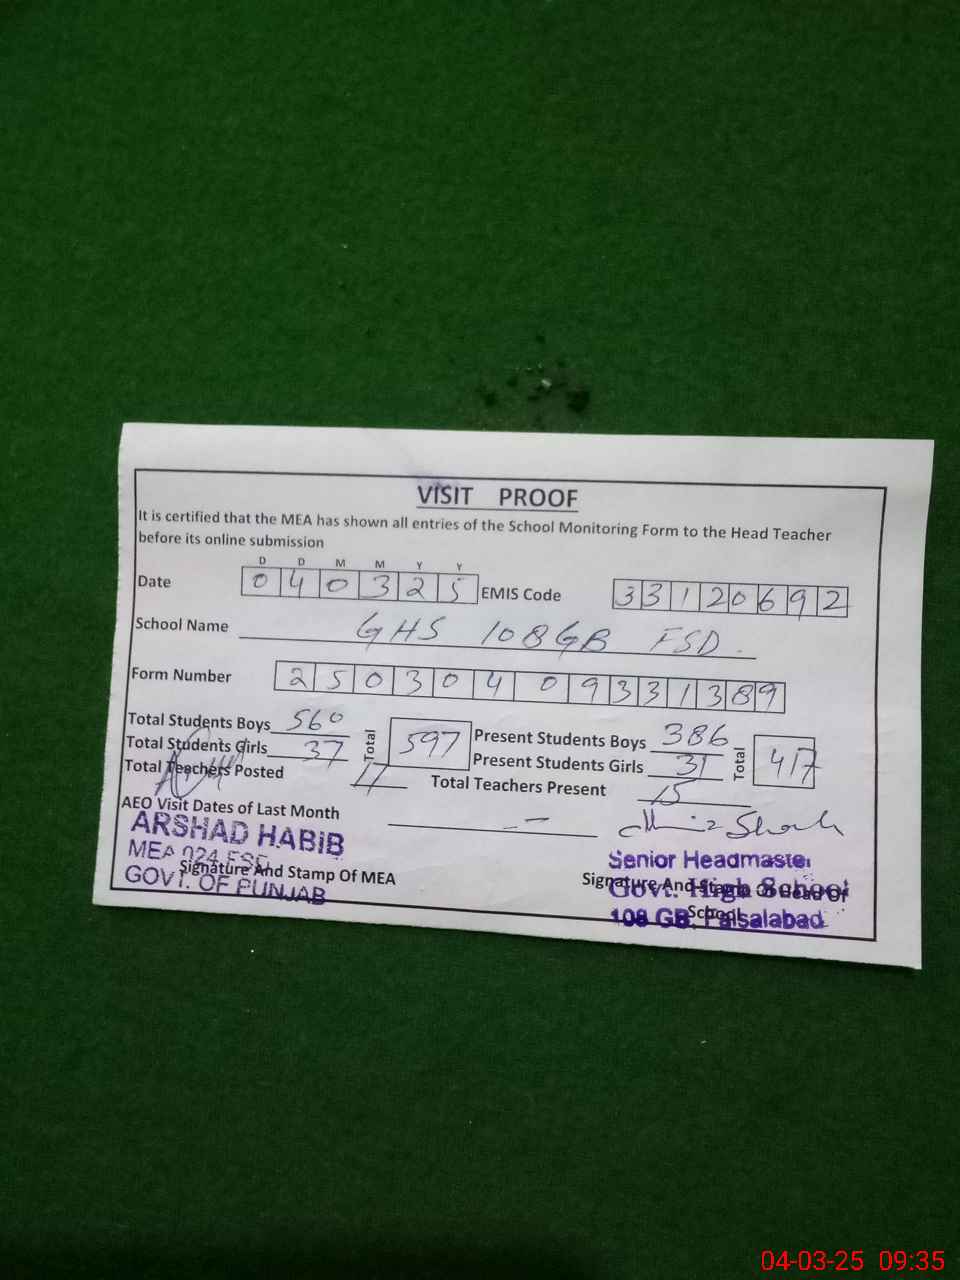 VISIT PROOF
It is certified that the MEA has shown all entries of the School Monitoring Form to the Head Teacher
before its online submission
D D M M Y Y
Date 040325 EMIS Code 33120692
School Name GHS 108 GB FSD.
Form Number 250304093313 89
Total Students Boys 560 Total 597 Present Students Boys 386 Total 417
Total Students Girls 37 Present Students Girls 31
Total Teachers Posted 17 Total Teachers Present 15
AEO Visit Dates of Last Month --
ARSHAD HABIB
MEA 024 FSD
GOVT. OF PUNJAB
Signature And Stamp Of MEA
Senior Headmaster
Govt. High School
108 GB. Faisalabad
Signature And Stamp Of Head Of
School
04-03-25 09:35